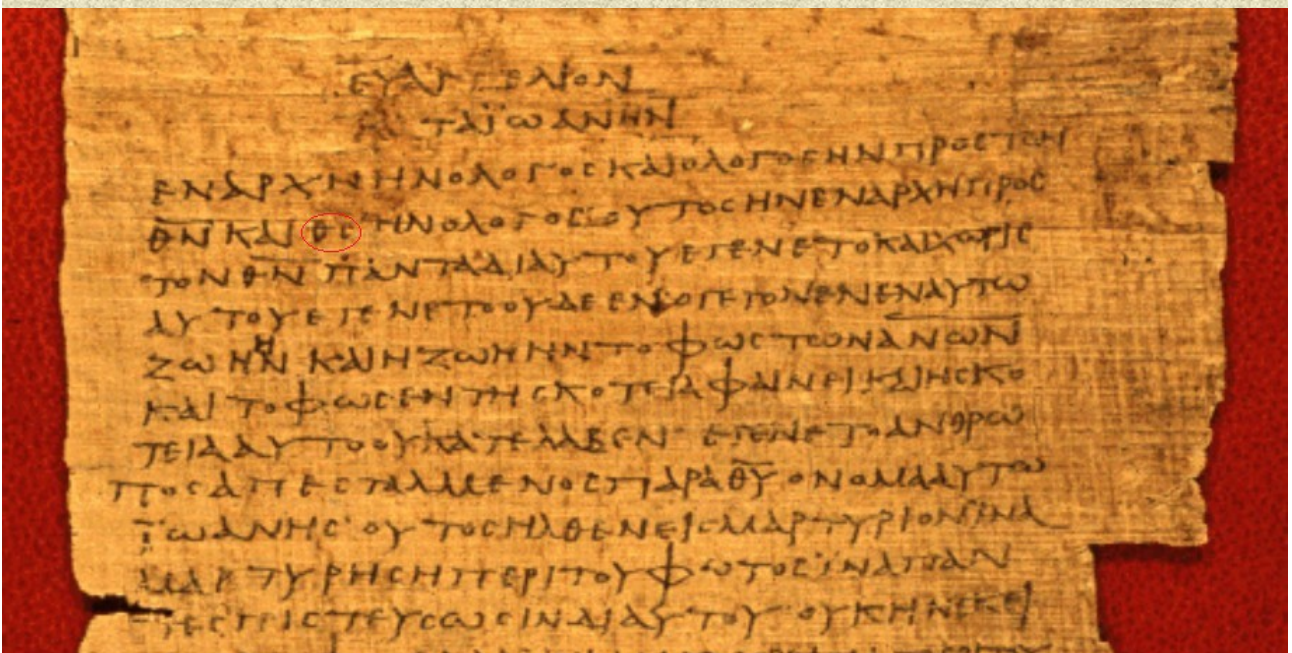 ΕΥΑΓΓΕΛΙΟΝ
ΚΑΤΑΪΩΑΝΗΝ
ΕΝΑΡΧΗΗΝΟΛΟΓΟϹΚΑΙΟΛΟΓΟϹΗΝΠΡΟϹΤΟΝ
Θ̅Ν̅ ΚΑΙ Θ̅Ϲ̅ ΗΝΟΛΟΓΟϹ ΟΥΤΟϹΗΝΕΝΑΡΧΗΠΡΟϹ
ΤΟΝ Θ̅Ν̅ ΠΑΝΤΑΔΙΑΥΤΟΥΕΓΕΝΕΤΟΚΑΙΧΩΡΙϹ
ΑΥΤΟΥΕΓΕΝΕΤΟΟΥΔΕΕΝ ΟΓΕΓΟΝΕΝΕΝΑΥΤΩ
ΖΩΗΗΝ ΚΑΙΗΖΩΗΗΝΤΟΦΩϹΤΩΝΑ̅Ν̅Ω̅Ν̅
ΚΑΙΤΟΦΩϹΕΝΤΗϹΚΟΤΕΙΑΦΑΙΝΕΙΚΑΙΗϹΚΟ
ΤΕΙΑΑΥΤΟΟΥΚΑΤΕΛΑΒΕΝ ΕΓΕΝΕΤΟΑΝΘΡΩ
ΠΟϹΑΠΕϹΤΑΛΜΕΝΟϹΠΑΡΑΘ̅Υ̅ ΟΝΟΜΑΑΥΤΩ
ΪΩΑΝΗϹ ΟΥΤΟϹΗΛΘΕΝΕΙϹΜΑΡΤΥΡΙΟΝΪΝΑ
ΜΑΡΤΥΡΗϹΗΠΕΡΙΤΟΥΦΩΤΟϹΪΝΑΠΑΝ
ΤΕϹΠΙϹΤΕΥϹΩϹΙΝΔΙΑΥΤΟΥ ΟΥΚΗΝΕΚΕΙ